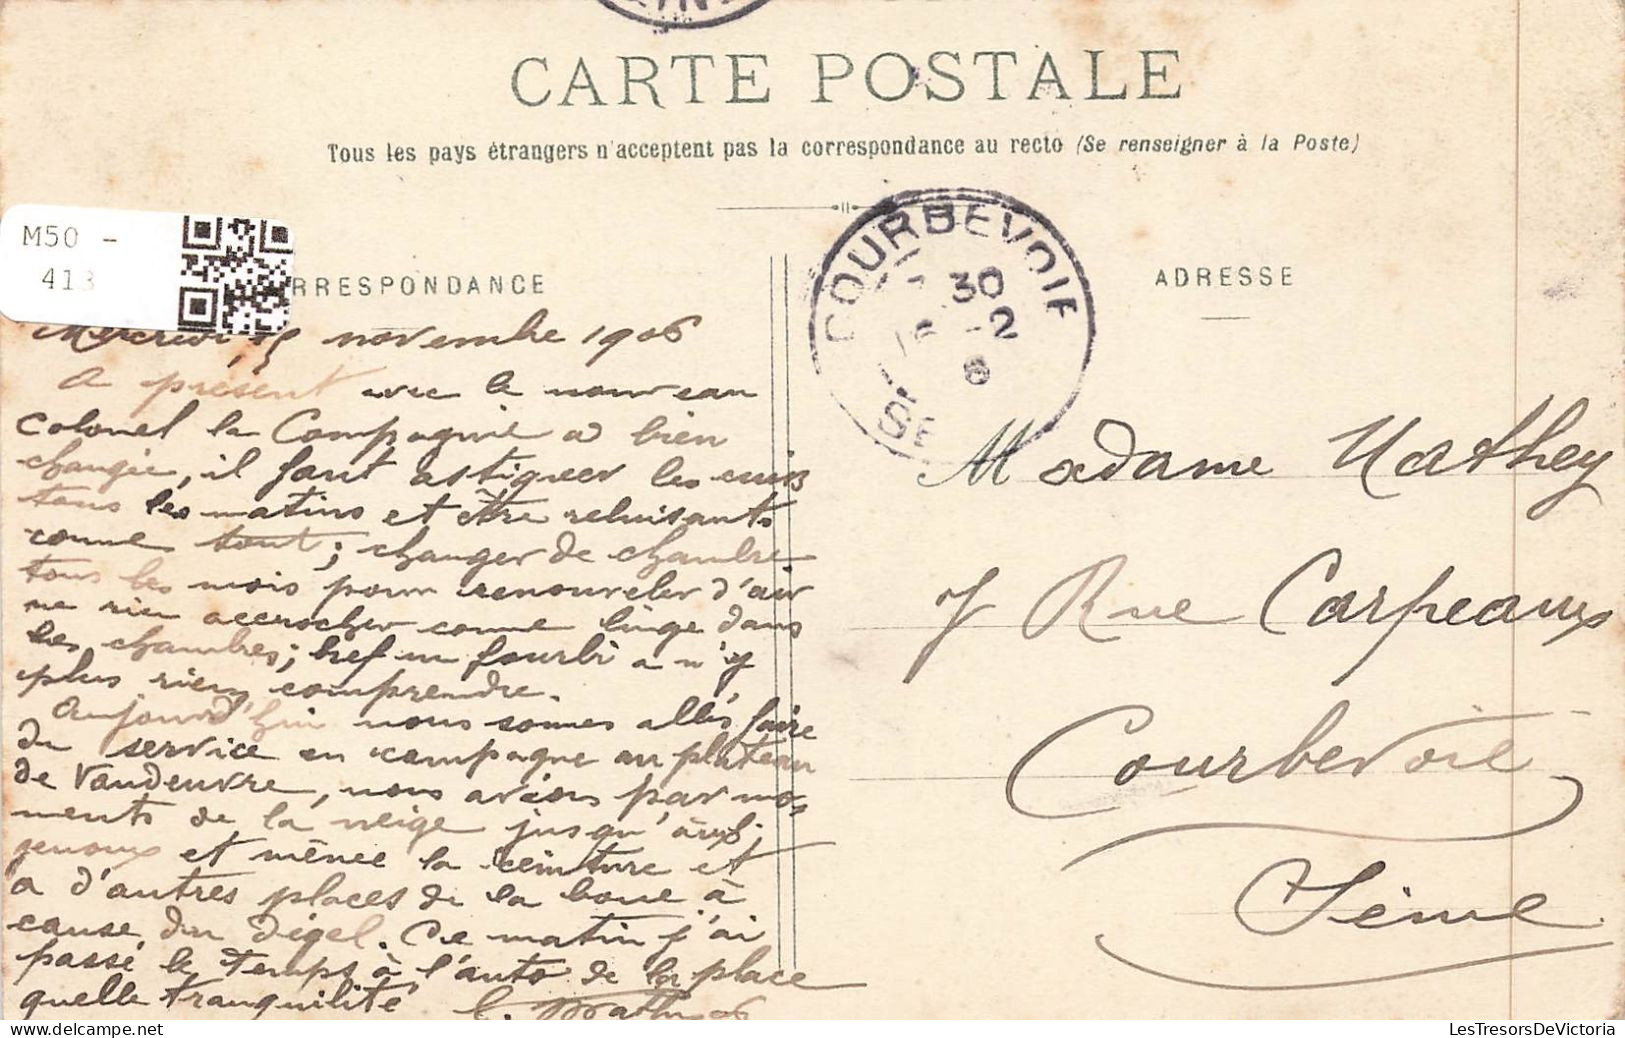 CARTE POSTALE
Tous les pays étrangers n'acceptent pas la correspondance au recto (Se renseigner à la Poste)
M50 -
413
RRESPONDANCE
COURBEVOIE
30
-2
8
ADRESSE
Mercredi, novembre 1906
A présent avec le nouveau
colonel la Compagnie a bien
changée, il faut astiquer les cuirs
tous les matins et être reluisants
comme tout; changer de chambre
tous les mois pour renouveler d'air
ne rien accrocher comme linge dans
les chambres; bref un fourbi a n'y
plus rien comprendre.
Aujourd'hui nous sommes allés faire
du service en campagne au plateau
de Vandeuvre, nous avions par mo-
ments de la neige jusqu'aux
genoux et même la ceinture et
a d'autres places de la boue à
cause du dégel. Ce matin j'ai
passé le temps à l'auto de la place
quelle tranquilité.
Madame Mathey
7 Rue Carpeaux
Courbevoie
Seine
LesTresorsDeVictoria